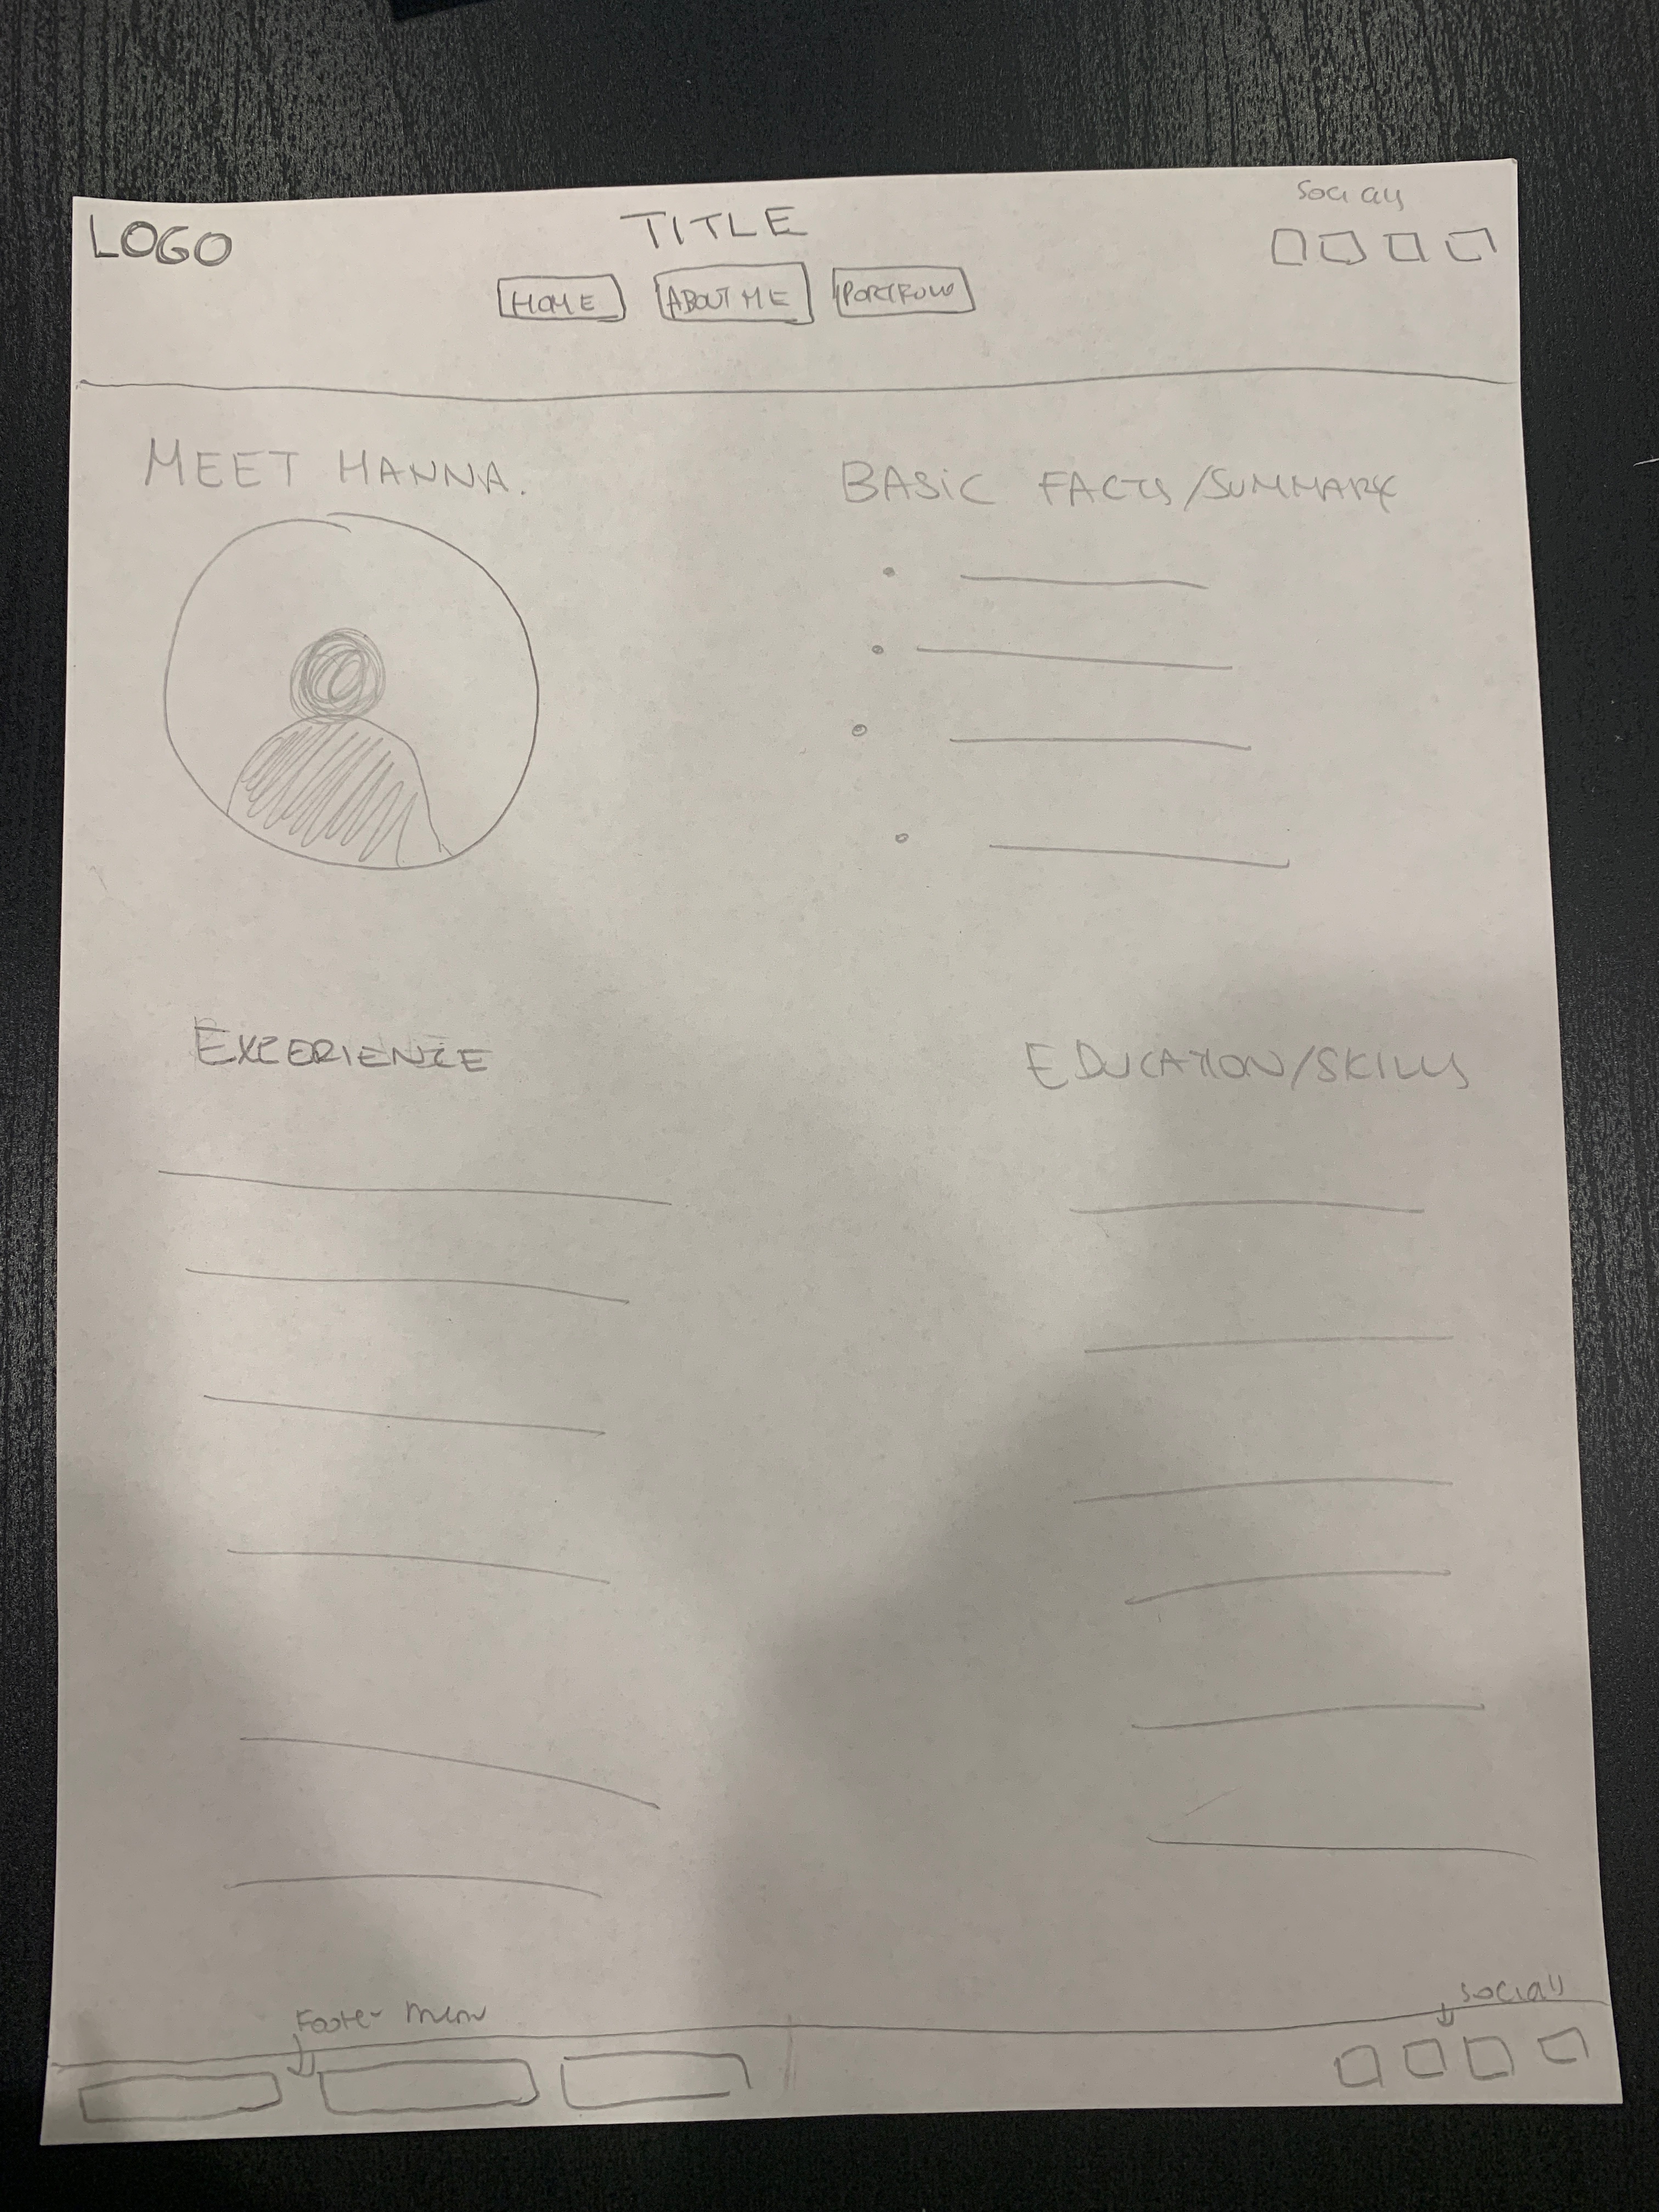 Socials
LOGO
TITLE
HOME
ABOUT ME
PORTFOLIO
MEET HANNA.
BASIC FACTS/SUMMARY
EXPERIENCE
EDUCATION/SKILLS
Footer menu
socials